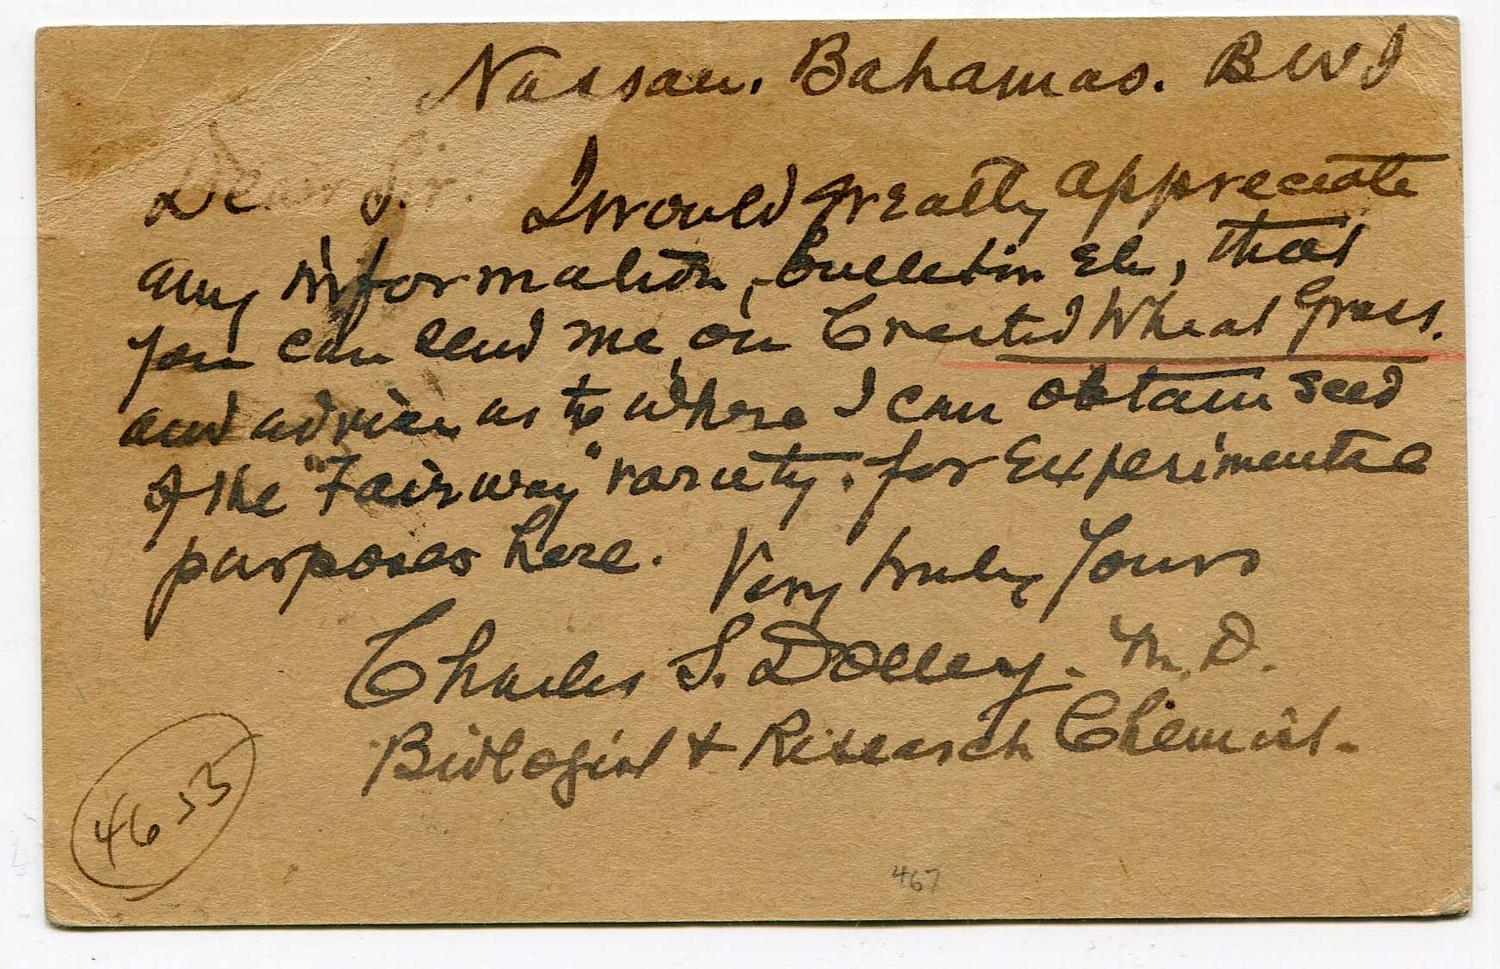 Nassau. Bahamas. B W I
Dear Sir: I would greatly appreciate
any information, bulletin etc, that
you can send me, on Crested Wheat Grass.
and advice as to where I can obtain seed
of the "Fairway" variety. for Experimental
purposes here. Very truly Yours
Charles S. Dolley. M.D.
Biologist & Research Chemist.
4653
467